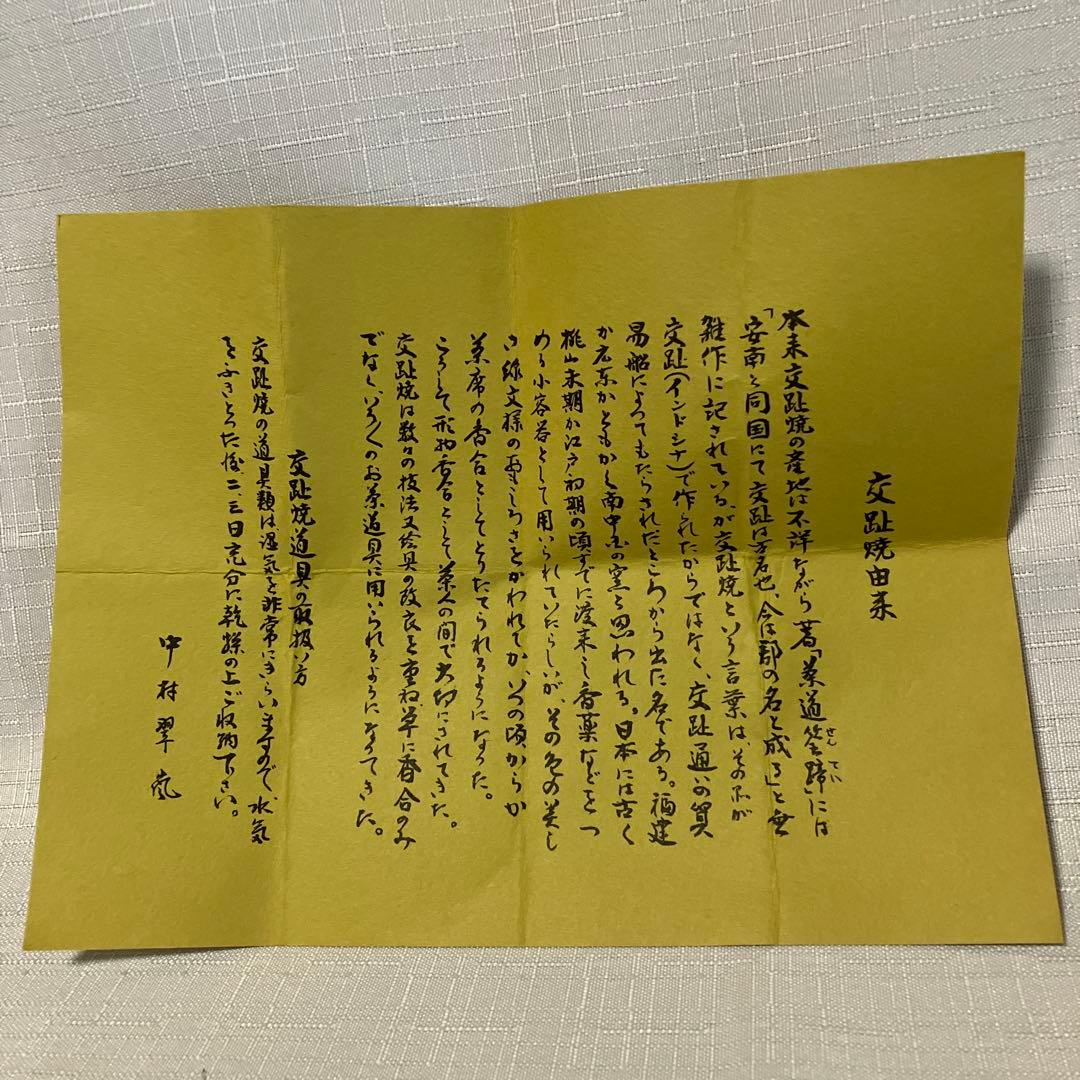 交趾焼由来
本来交趾焼の産地は不詳ながら著「茶道筌蹄」には
せんてい
「安南と同国にて交趾は方名也、今は郡の名と成る」と無
雑作に記されている、が交趾焼という言葉は、その品が
交趾(インドシナ)で作られたからではなく、交趾通いの貿
易船によってもたらされたところから出た名である。福建
か広東かともかく南中国の窯と思われる。日本には古く
桃山末期か江戸初期の頃すでに渡来し香薬などをつ
める小容器として用いられていたらしいが、その色の美し
さ線文様のおもしろさをかわれてか、いつの頃からか
茶席の香合としてとりたてられるようになった。
こうして形物香合として茶人の間で大切にされてきた。
交趾焼は数々の技法又絵具の改良を重ね、単に香合のみ
でなく、いろ〱のお茶道具に用いられるようになってきた。
交趾焼道具の取扱い方
交趾焼の道具類は湿気を非常にきらいますので、水気
をふきとった後二、三日充分に乾燥の上ご収納下さい。
中村翠嵐